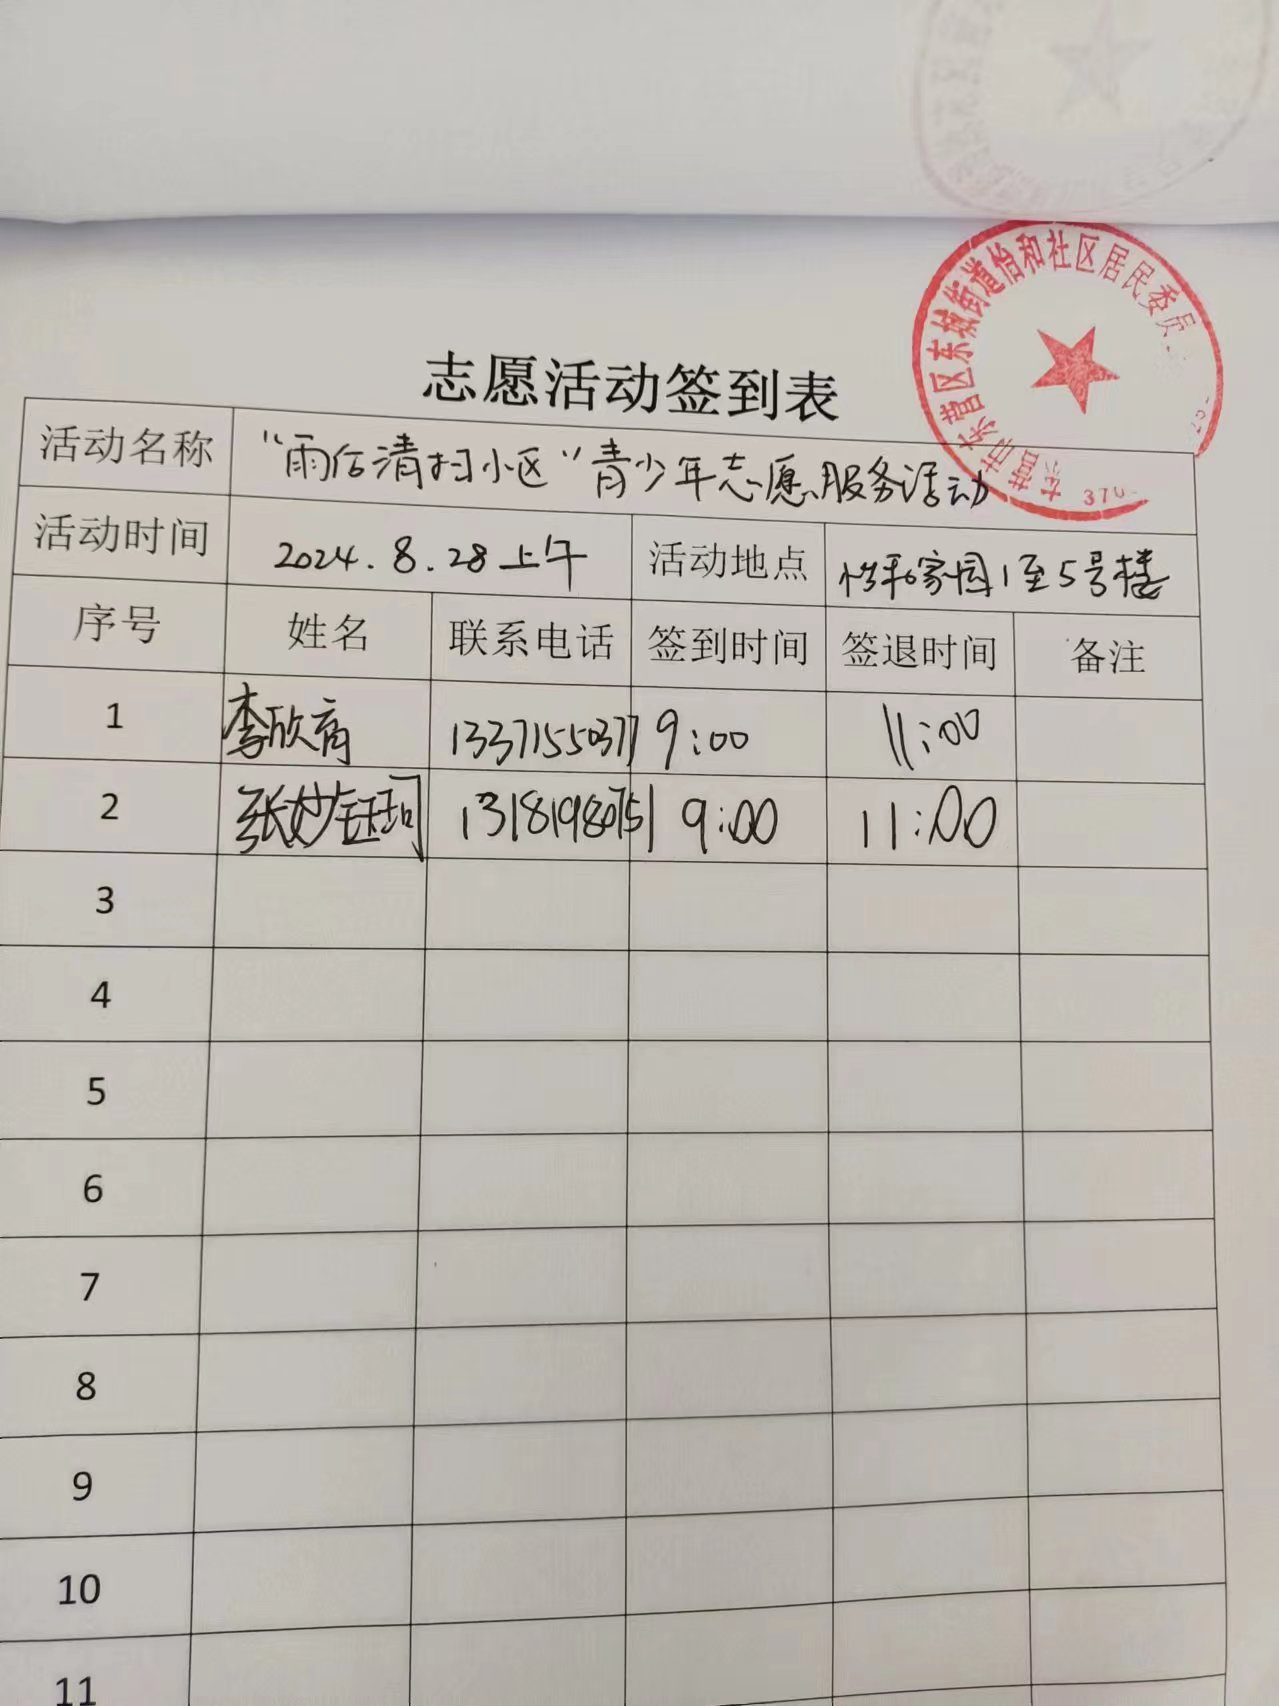 东营市东营区东城街道怡和社区居民委员
370
志愿活动签到表
活动名称 “雨后清扫小区”青少年志愿服务活动
活动时间 2024.8.28上午 活动地点 怡和家园1至5号楼
序号 姓名 联系电话 签到时间 签退时间 备注
1 李欣 13371550377 9:00 11:00
2 张妙钰珂 13181980751 9:00 11:00
3
4
5
6
7
8
9
10
11